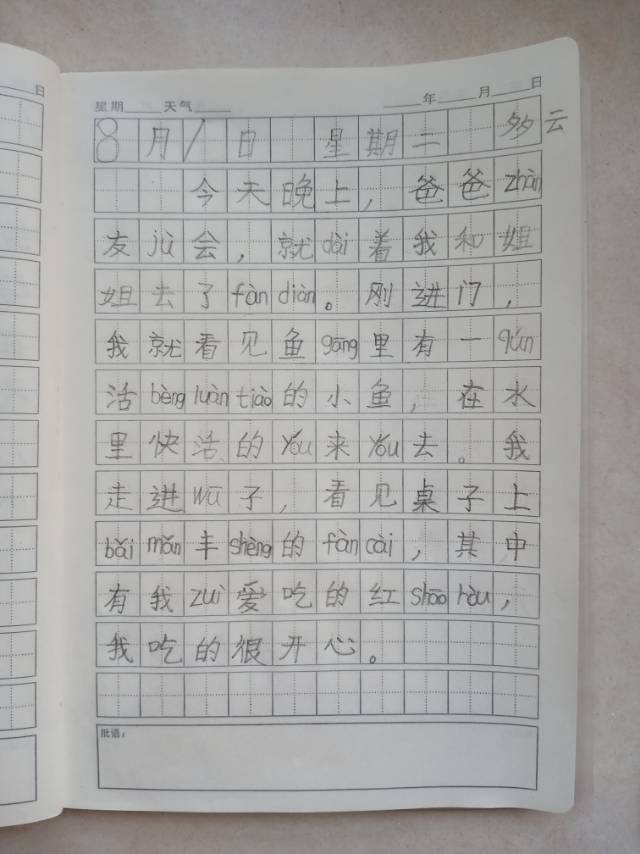 日
星期 天气 年 月 日
8月1日 星期二 多云
今天晚上，爸爸zhàn
友jù会，就dài着我和姐
姐去了fàn diàn。刚进门，
我就看见鱼gāng里有一qún
活bèng luàn tiào的小鱼，在水
里快活的yóu来yóu去。我
走进wū子，看见桌子上
bǎi mǎn丰shèng的fàn cài，其中
有我zuì爱吃的红shāo ròu，
我吃的很开心。
批语：